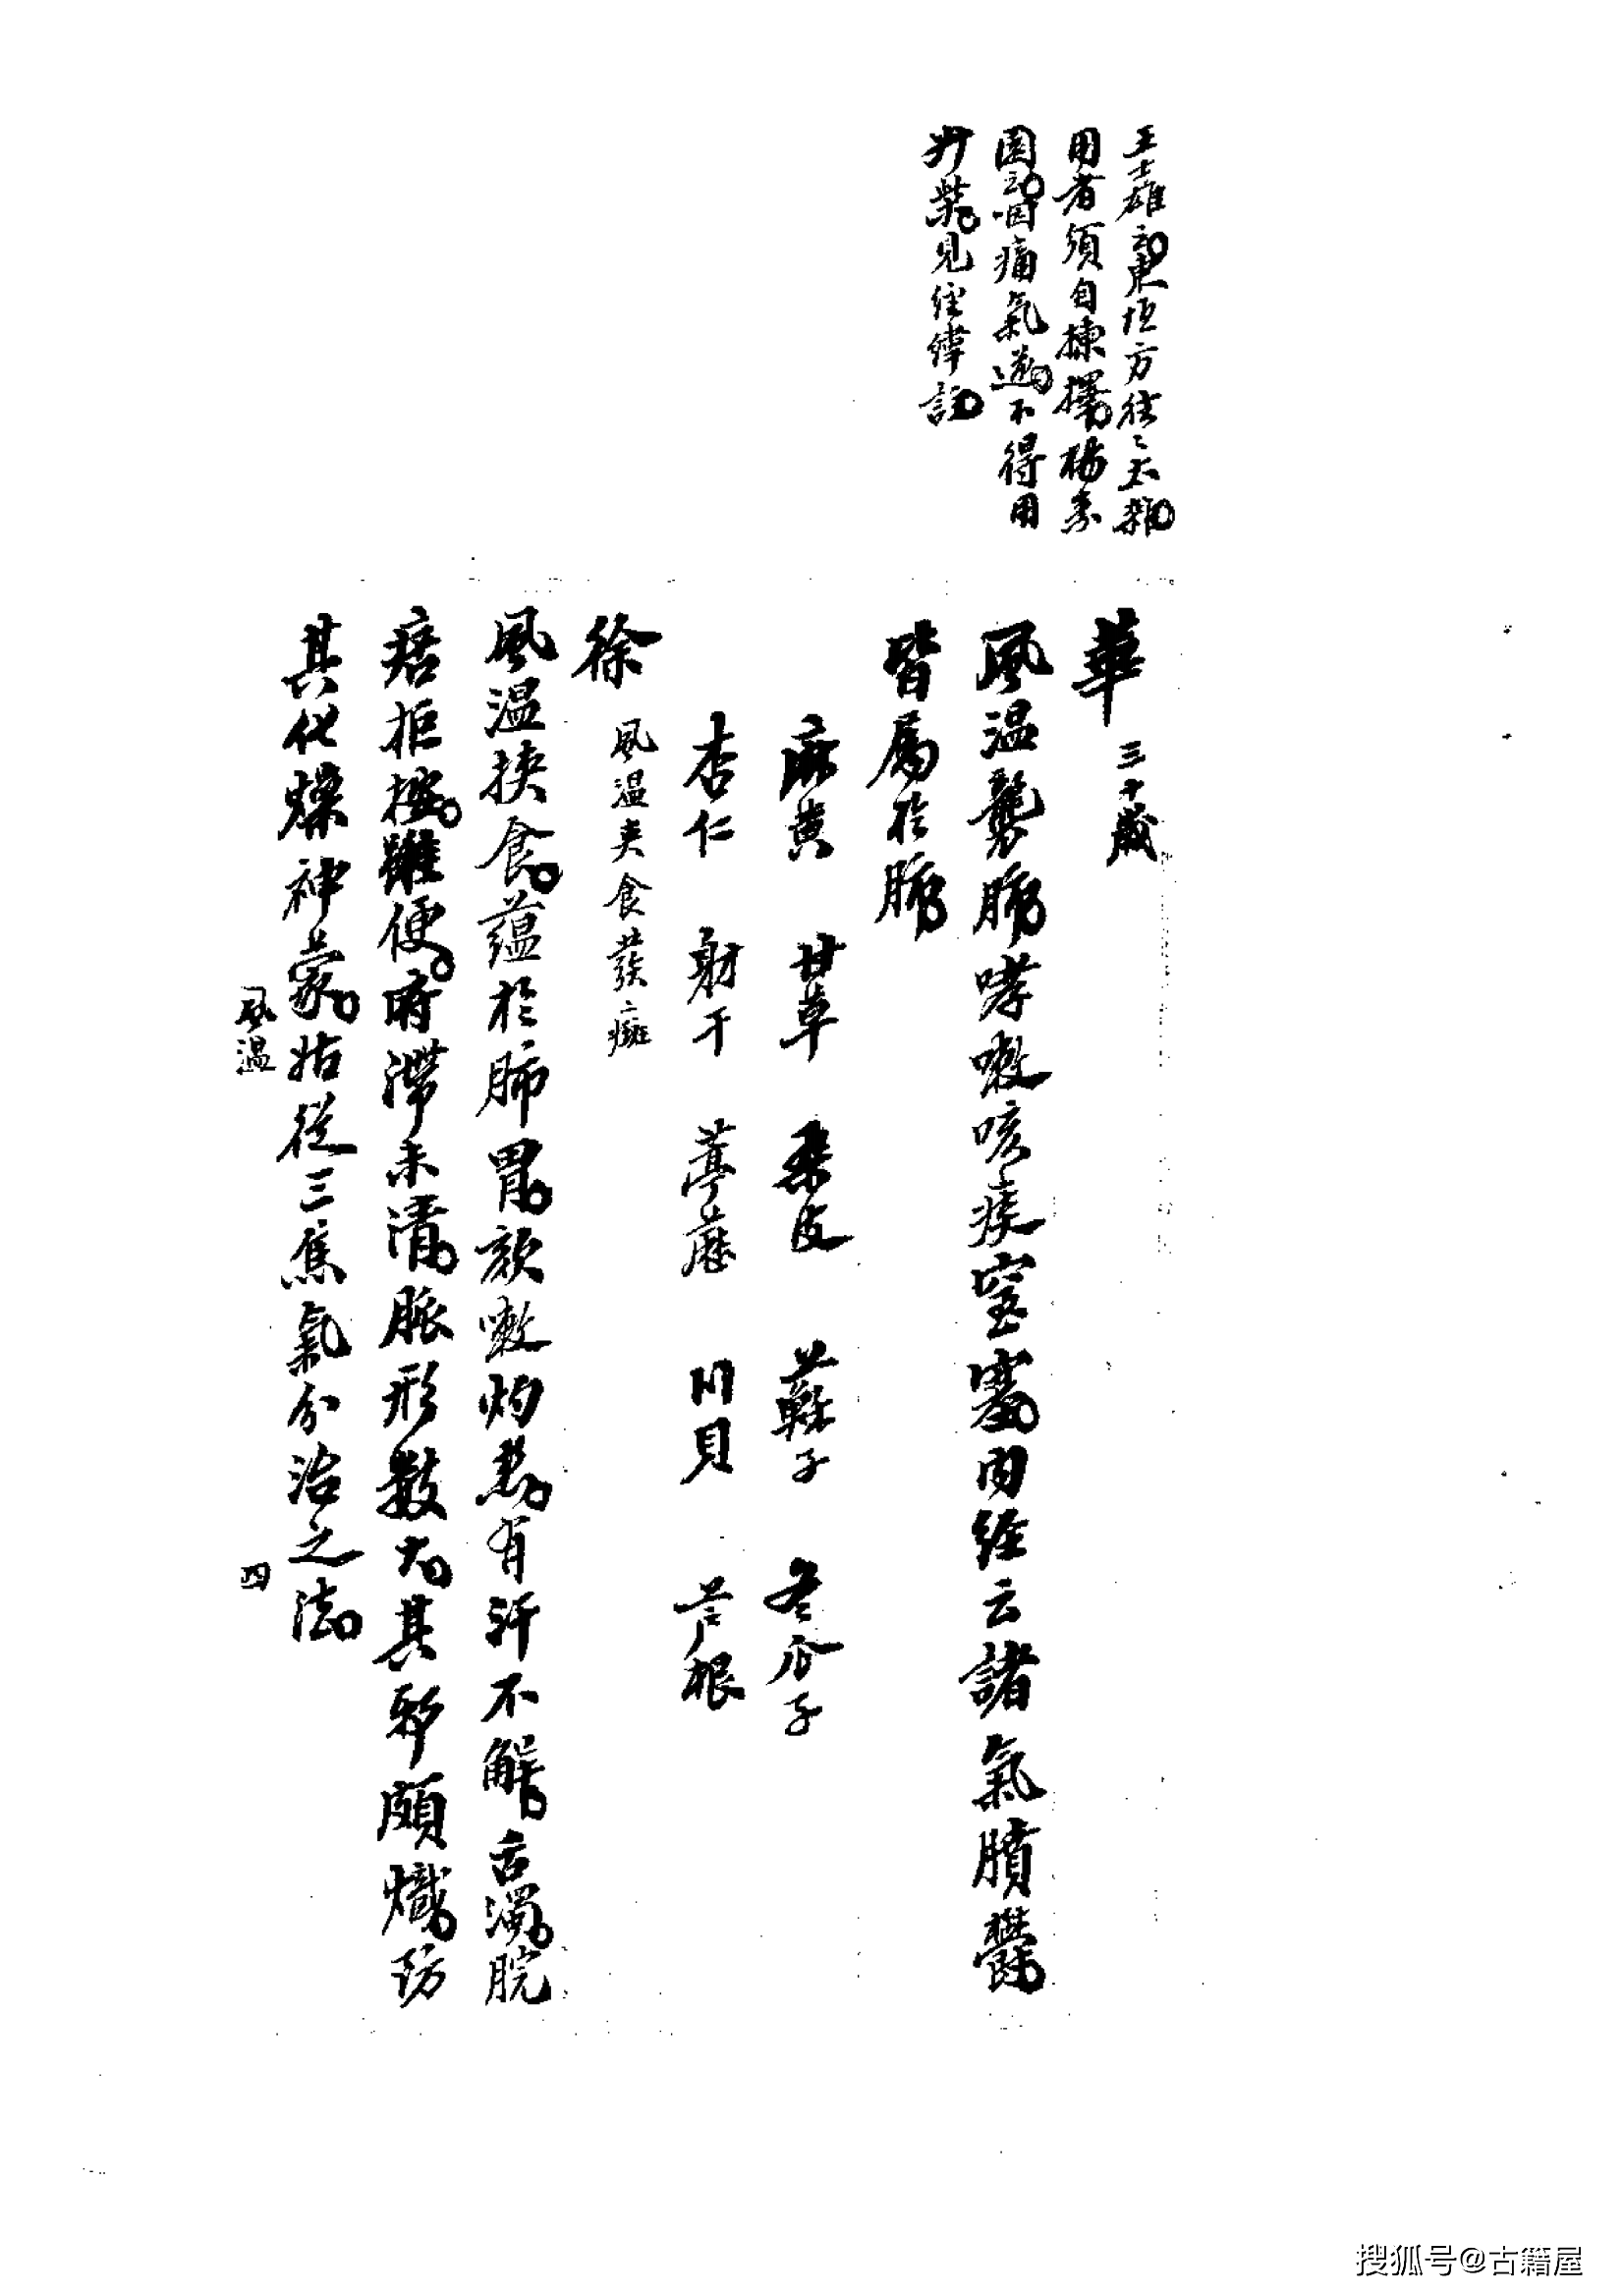 王士雄云東垣方往〻太雜
用者須自揀擇楊素
園云咽痛氣逆不得用
升柴見經緯註
華 三十歲
風温襲肺哮嗽咳痰窒塞内经云諸氣膹鬱
皆属於肺
麻黄 甘草 桑皮 蘇子 冬瓜子
杏仁 射干 葶藶 川貝 芦根
徐 風温夾食發癍
風温挟食蕴於肺胃欬嗽灼热有汗不解舌濁脘
痞拒按雖便府滞未清脈形數大其邪頗熾防
其化燥神蒙姑從三焦氣分治之法
風温 四
搜狐号@古籍屋